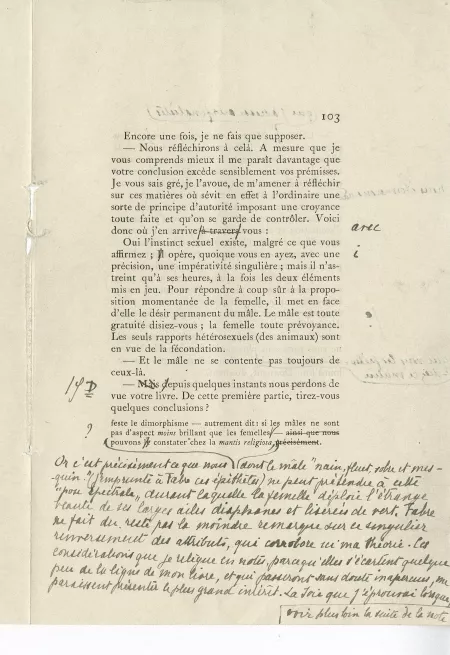 103
Encore une fois, je ne fais que supposer.
— Nous réfléchirons à celà. A mesure que je
vous comprends mieux il me paraît davantage que
votre conclusion excède sensiblement vos prémisses.
Je vous sais gré, je l'avoue, de m'amener à réfléchir
sur ces matières où sévit en effet à l'ordinaire une
sorte de principe d'autorité imposant une croyance
toute faite et qu'on se garde de contrôler. Voici
donc où j'en arrive à travers vous : avec
Oui l'instinct sexuel existe, malgré ce que vous
affirmez ; Il opère, quoique vous en ayez, avec une i
précision, une impérativité singulière ; mais il n'as-
treint qu'à ses heures, à la fois les deux éléments
mis en jeu. Pour répondre à coup sûr à la propo-
sition momentanée de la femelle, il met en face
d'elle le désir permanent du mâle. Le mâle est toute
gratuité disiez-vous ; la femelle toute prévoyance.
Les seuls rapports hétérosexuels (des animaux) sont
en vue de la fécondation.
— Et le mâle ne se contente pas toujours de
ceux-là.
D — Mais depuis quelques instants nous perdons de
vue votre livre. De cette première partie, tirez-vous
quelques conclusions ?
feste le dimorphisme — autrement dit : si les mâles ne sont
pas d'aspect moins brillant que les femelles — ainsi que nous
? pouvons le constater chez la mantis religiosa, précisément.
Or c'est précisément ce que nous dont le mâle "nain, fluet, sobre et mes-
quin" (j'emprunte à Fabre ces épithètes) ne peut prétendre à cette
"pose spectrale", durant laquelle la femelle déploie l'étrange
beauté de ses larges ailes diaphanes et liserées de vert. Fabre
ne fait du reste pas la moindre remarque sur ce singulier
renversement des attributs, qui corrobore ici ma théorie. Ces
considérations que je relègue en notes, parce qu'elles s'écartent quelque
peu de la ligne de mon livre, et qui passeront sans doute inaperçues, me
paraissent présenter le plus grand intérêt. La joie que j'éprouvai lorsque,
voir plus loin la suite de la note